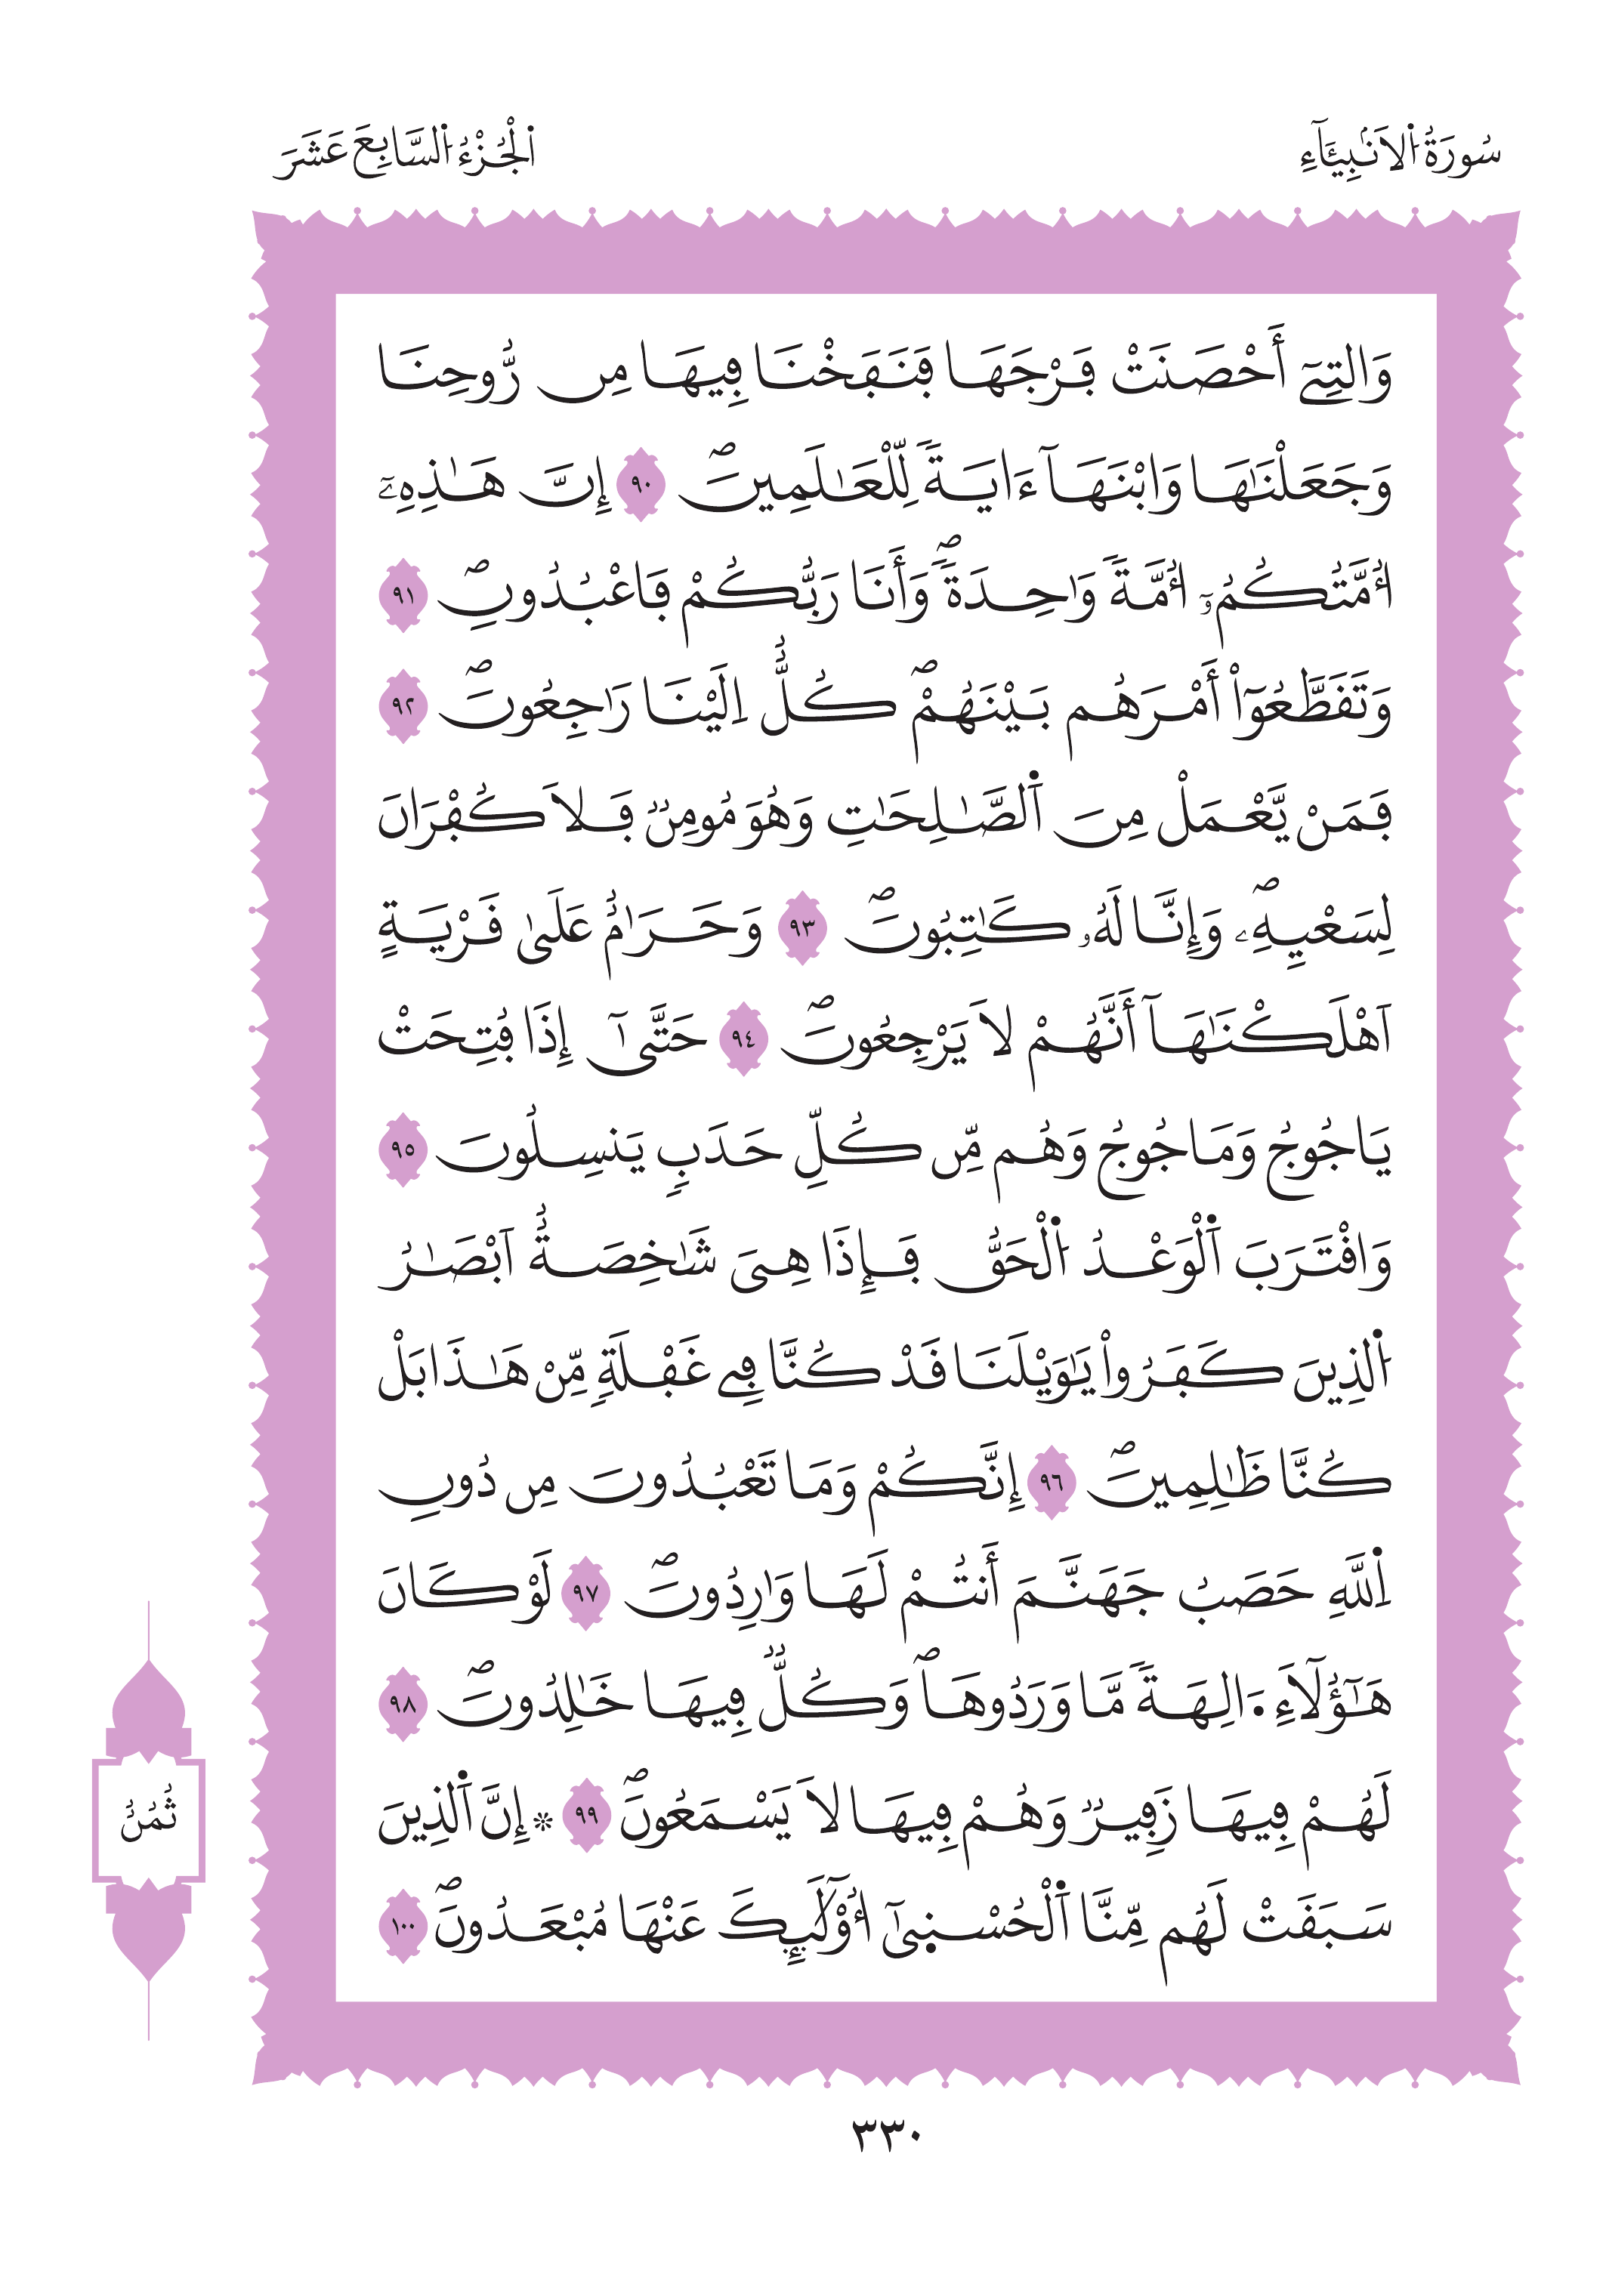 سُورَةُ اُ۬لَانۢبِيَآءِ
اُ۬لْجُزْءُ اُ۬لسَّابِعَ عَشَرَ
وَالتِےٓ أَحْصَنَتْ فَرْجَهَا فَنَفَخْنَا فِيهَا مِن رُّوحِنَا
وَجَعَلْنَٰهَا وَابْنَهَآ ءَايَةٗ لِّلْعَٰلَمِينَۖ ٩٠ إِنَّ هَٰذِهِۦٓ
أُمَّتُكُمُۥٓ أُمَّةٗ وَٰحِدَةٗۖ وَأَنَا رَبُّكُمْ فَاعْبُدُونِۖ ٩١
وَتَقَطَّعُوٓاْ أَمْرَهُم بَيْنَهُمْۖ كُلٌّ اِلَيْنَا رَٰجِعُونَۖ ٩٢
فَمَنْ يَّعْمَلْ مِنَ اَ۬لصَّٰلِحَٰتِ وَهُوَ مُومِنٞ فَلَا كُفْرَانَ
لِسَعْيِهِۦۖ وَإِنَّا لَهُۥ كَٰتِبُونَۖ ٩٣ وَحَرَٰمٌ عَلَىٰ قَرْيَةٍ
اَهْلَكْنَٰهَآ أَنَّهُمْ لَا يَرْجِعُونَۖ ٩٤ حَتَّىٰٓ إِذَا فُتِحَتْ
يَاجُوجُ وَمَاجُوجُ وَهُم مِّن كُلِّ حَدَبٖ يَنسِلُونَ ٩٥
وَاقْتَرَبَ اَ۬لْوَعْدُ اُ۬لْحَقُّ فَإِذَا هِىَ شَٰخِصَةٌ اَبْصَٰرُ
اُ۬لذِينَ كَفَرُواْ يَٰوَيْلَنَا قَدْ كُنَّا فِے غَفْلَةٖ مِّنْ هَٰذَا بَلْ
كُنَّا ظَٰلِمِينَۖ ٩٦ إِنَّكُمْ وَمَا تَعْبُدُونَ مِن دُونِ
اِ۬للَّهِ حَصَبُ جَهَنَّمَ أَنتُمْ لَهَا وَٰرِدُونَۖ ٩٧ لَوْ كَانَ
هَٰٓؤُلَآءِ اٰلِهَةٗ مَّا وَرَدُوهَاۖ وَكُلّٞ فِيهَا خَٰلِدُونَۖ ٩٨
لَهُمْ فِيهَا زَفِيرٞ وَهُمْ فِيهَا لَا يَسْمَعُونَۖ ٩٩ * إِنَّ اَ۬لذِينَ
سَبَقَتْ لَهُم مِّنَّا اَ۬لْحُسْنۭىٰٓ أُوْلَٰٓئِكَ عَنْهَا مُبْعَدُونَۖ ١٠٠
ثُمُنُ
٣٣٠